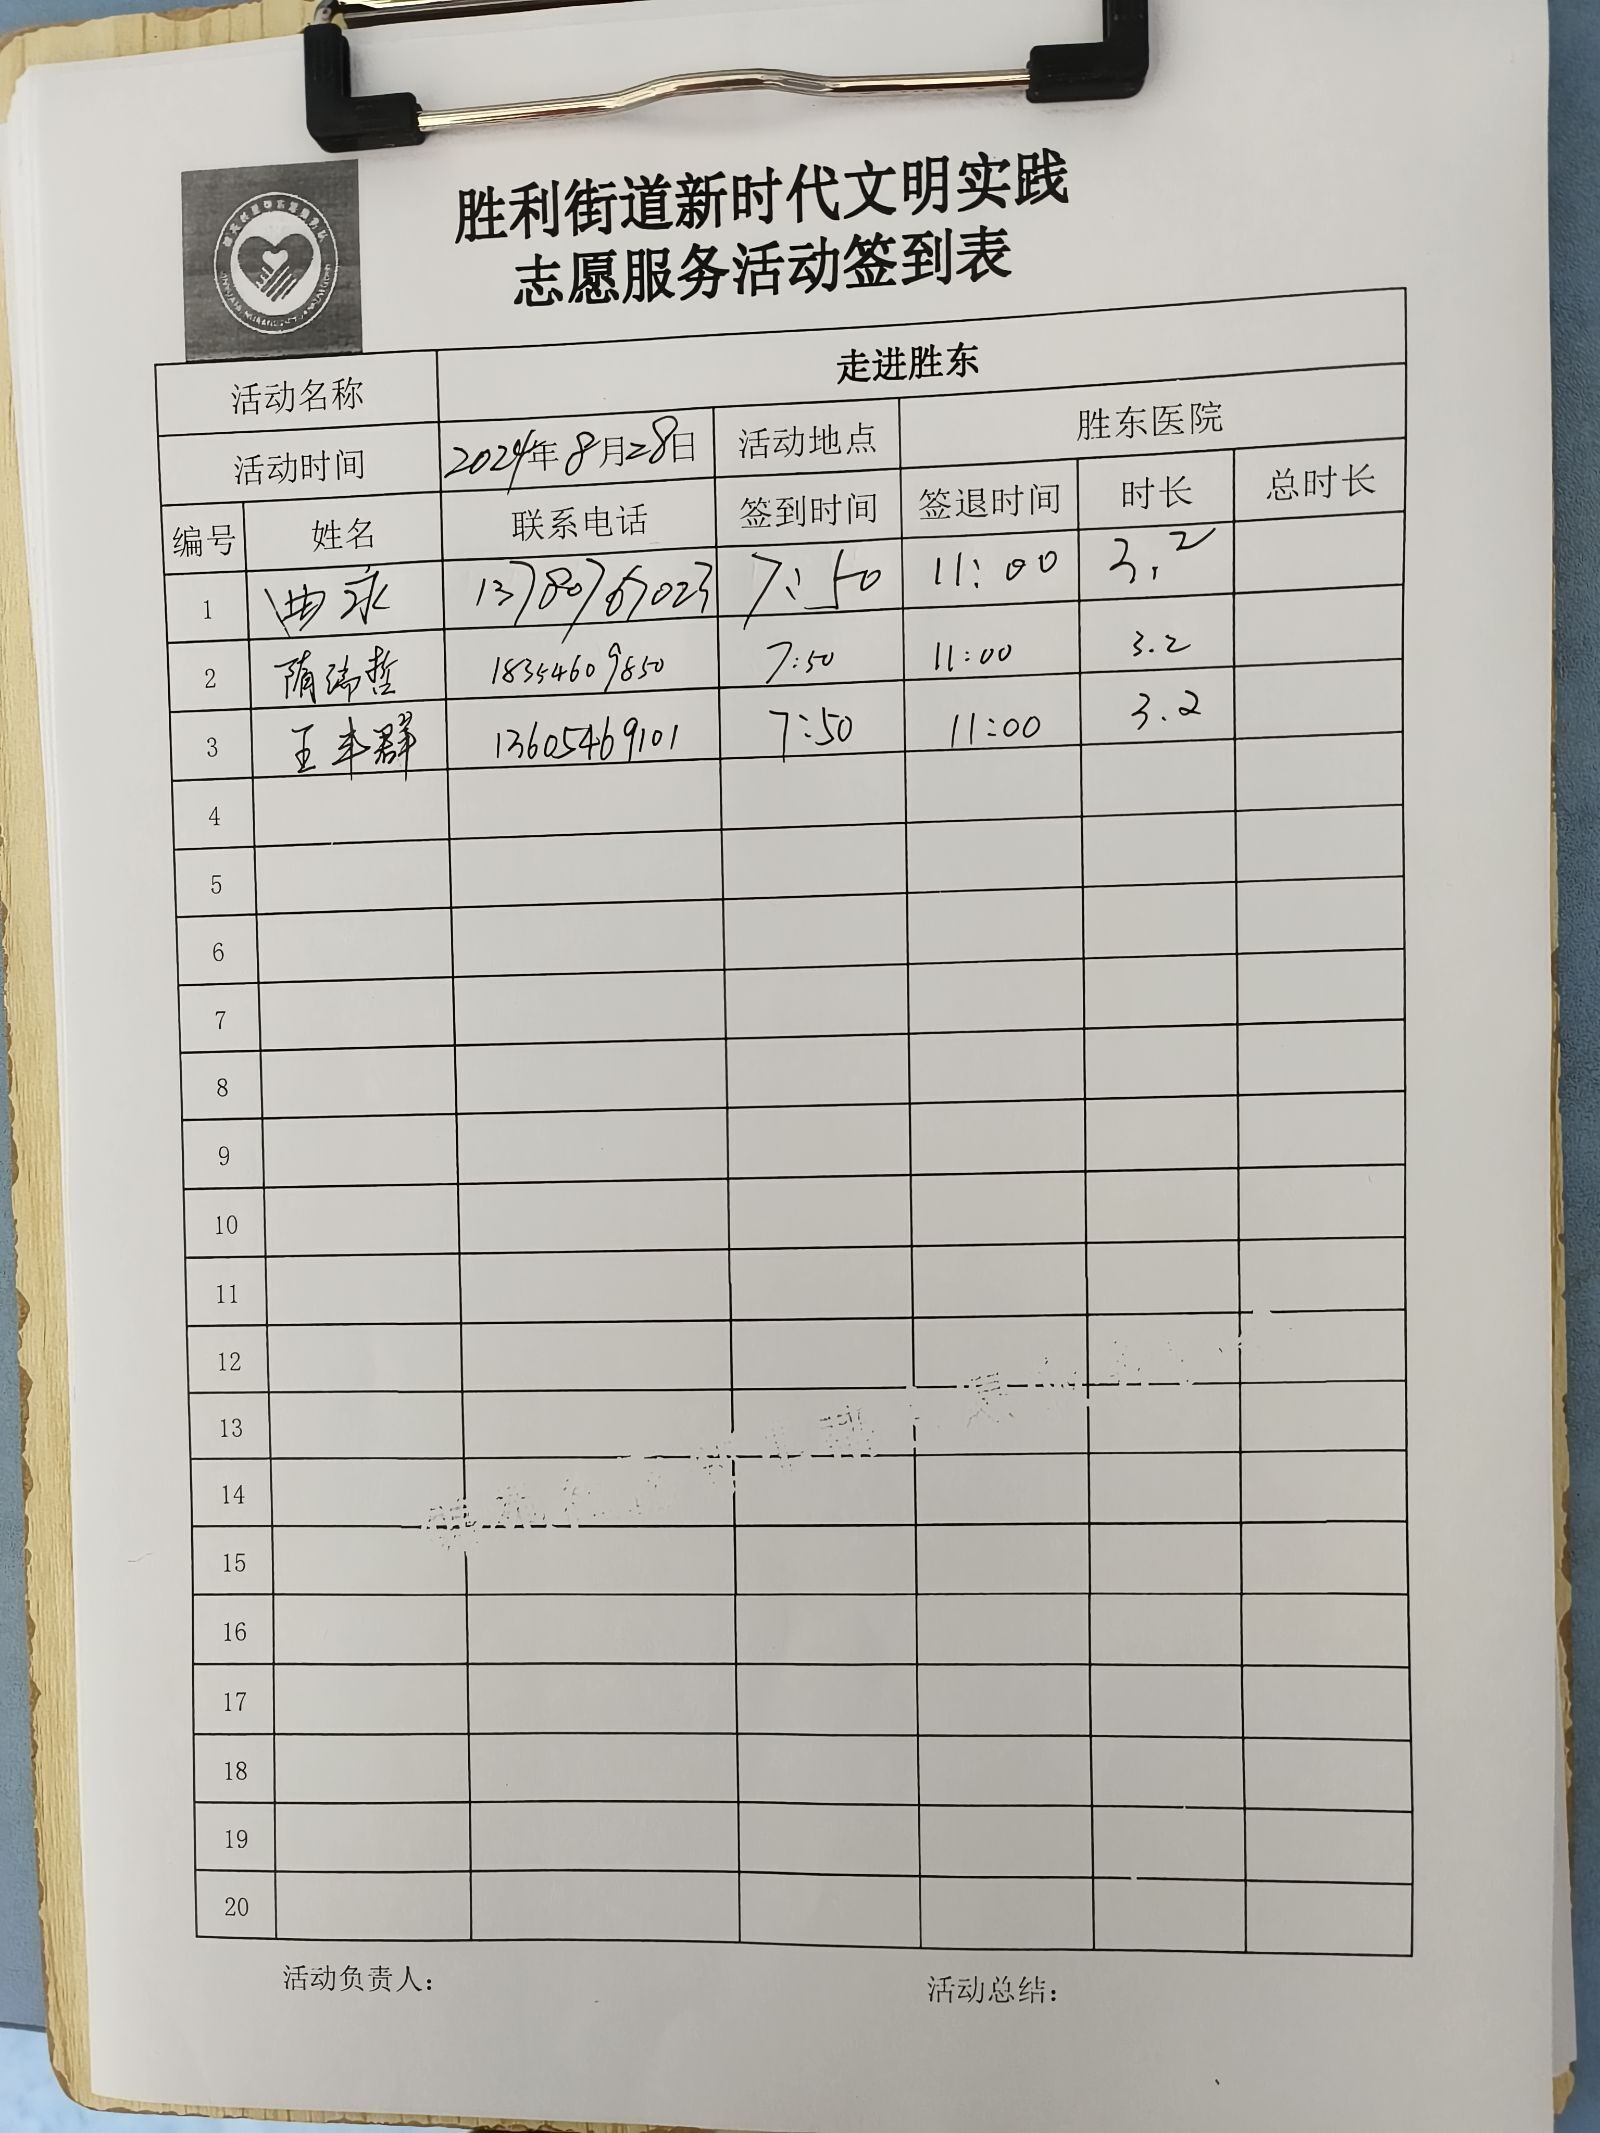 胜利街道新时代文明实践
志愿服务活动签到表
活动名称 走进胜东
活动时间 2024年8月28日 活动地点 胜东医院
编号 姓名 联系电话 签到时间 签退时间 时长 总时长
1 曲永 13780767023 7:50 11:00 3.2
2 隋瑞哲 18354609850 7:50 11:00 3.2
3 王丰群 13605469101 7:50 11:00 3.2
4
5
6
7
8
9
10
11
12
13
14
15
16
17
18
19
20
活动负责人: 活动总结: